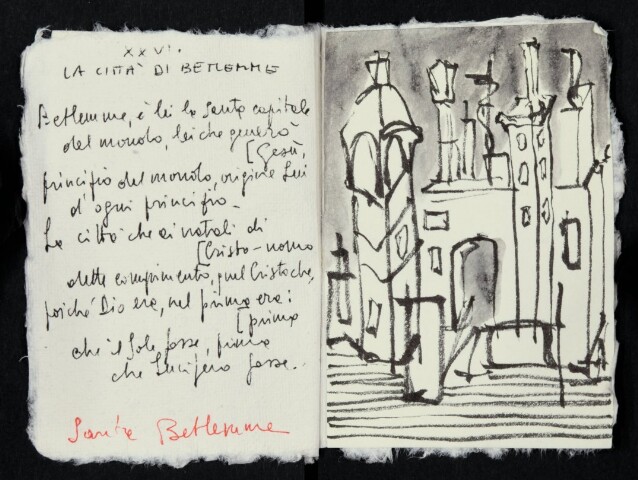 XXVI.
LA CITTÀ DI BETLEMME
Betlemme, è lei la santa capitale
del mondo, lei che generò
[Gesù,
principio del mondo, origine Lui
d'ogni principio.
La città che ai natali di
[Cristo-uomo
dette compimento, quel Cristo che,
poiché Dio era, nel prima era:
[prima
che il Sole fosse, prima
che Lucifero fosse.
Santa Betlemme